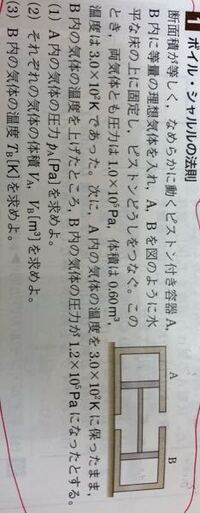 1 ボイル・シャルルの法則
断面積が等しく，なめらかに動くピストン付き容器A，
B内に等量の理想気体を入れ，A，Bを図のように水
平な床の上に固定し，ピストンどうしをつなぐ。この
とき，両気体とも圧力は1.0×10⁵Pa，体積は0.60m³，
温度は3.0×10²Kであった。次に，A内の気体の温度を3.0×10²Kに保ったまま，
B内の気体の温度を上げたところ，B内の気体の圧力が1.2×10⁵Paになったとする。
(1) A内の気体の圧力pA[Pa]を求めよ。
(2) それぞれの気体の体積VA，VB[m³]を求めよ。
(3) B内の気体の温度TB[K]を求めよ。
A
B